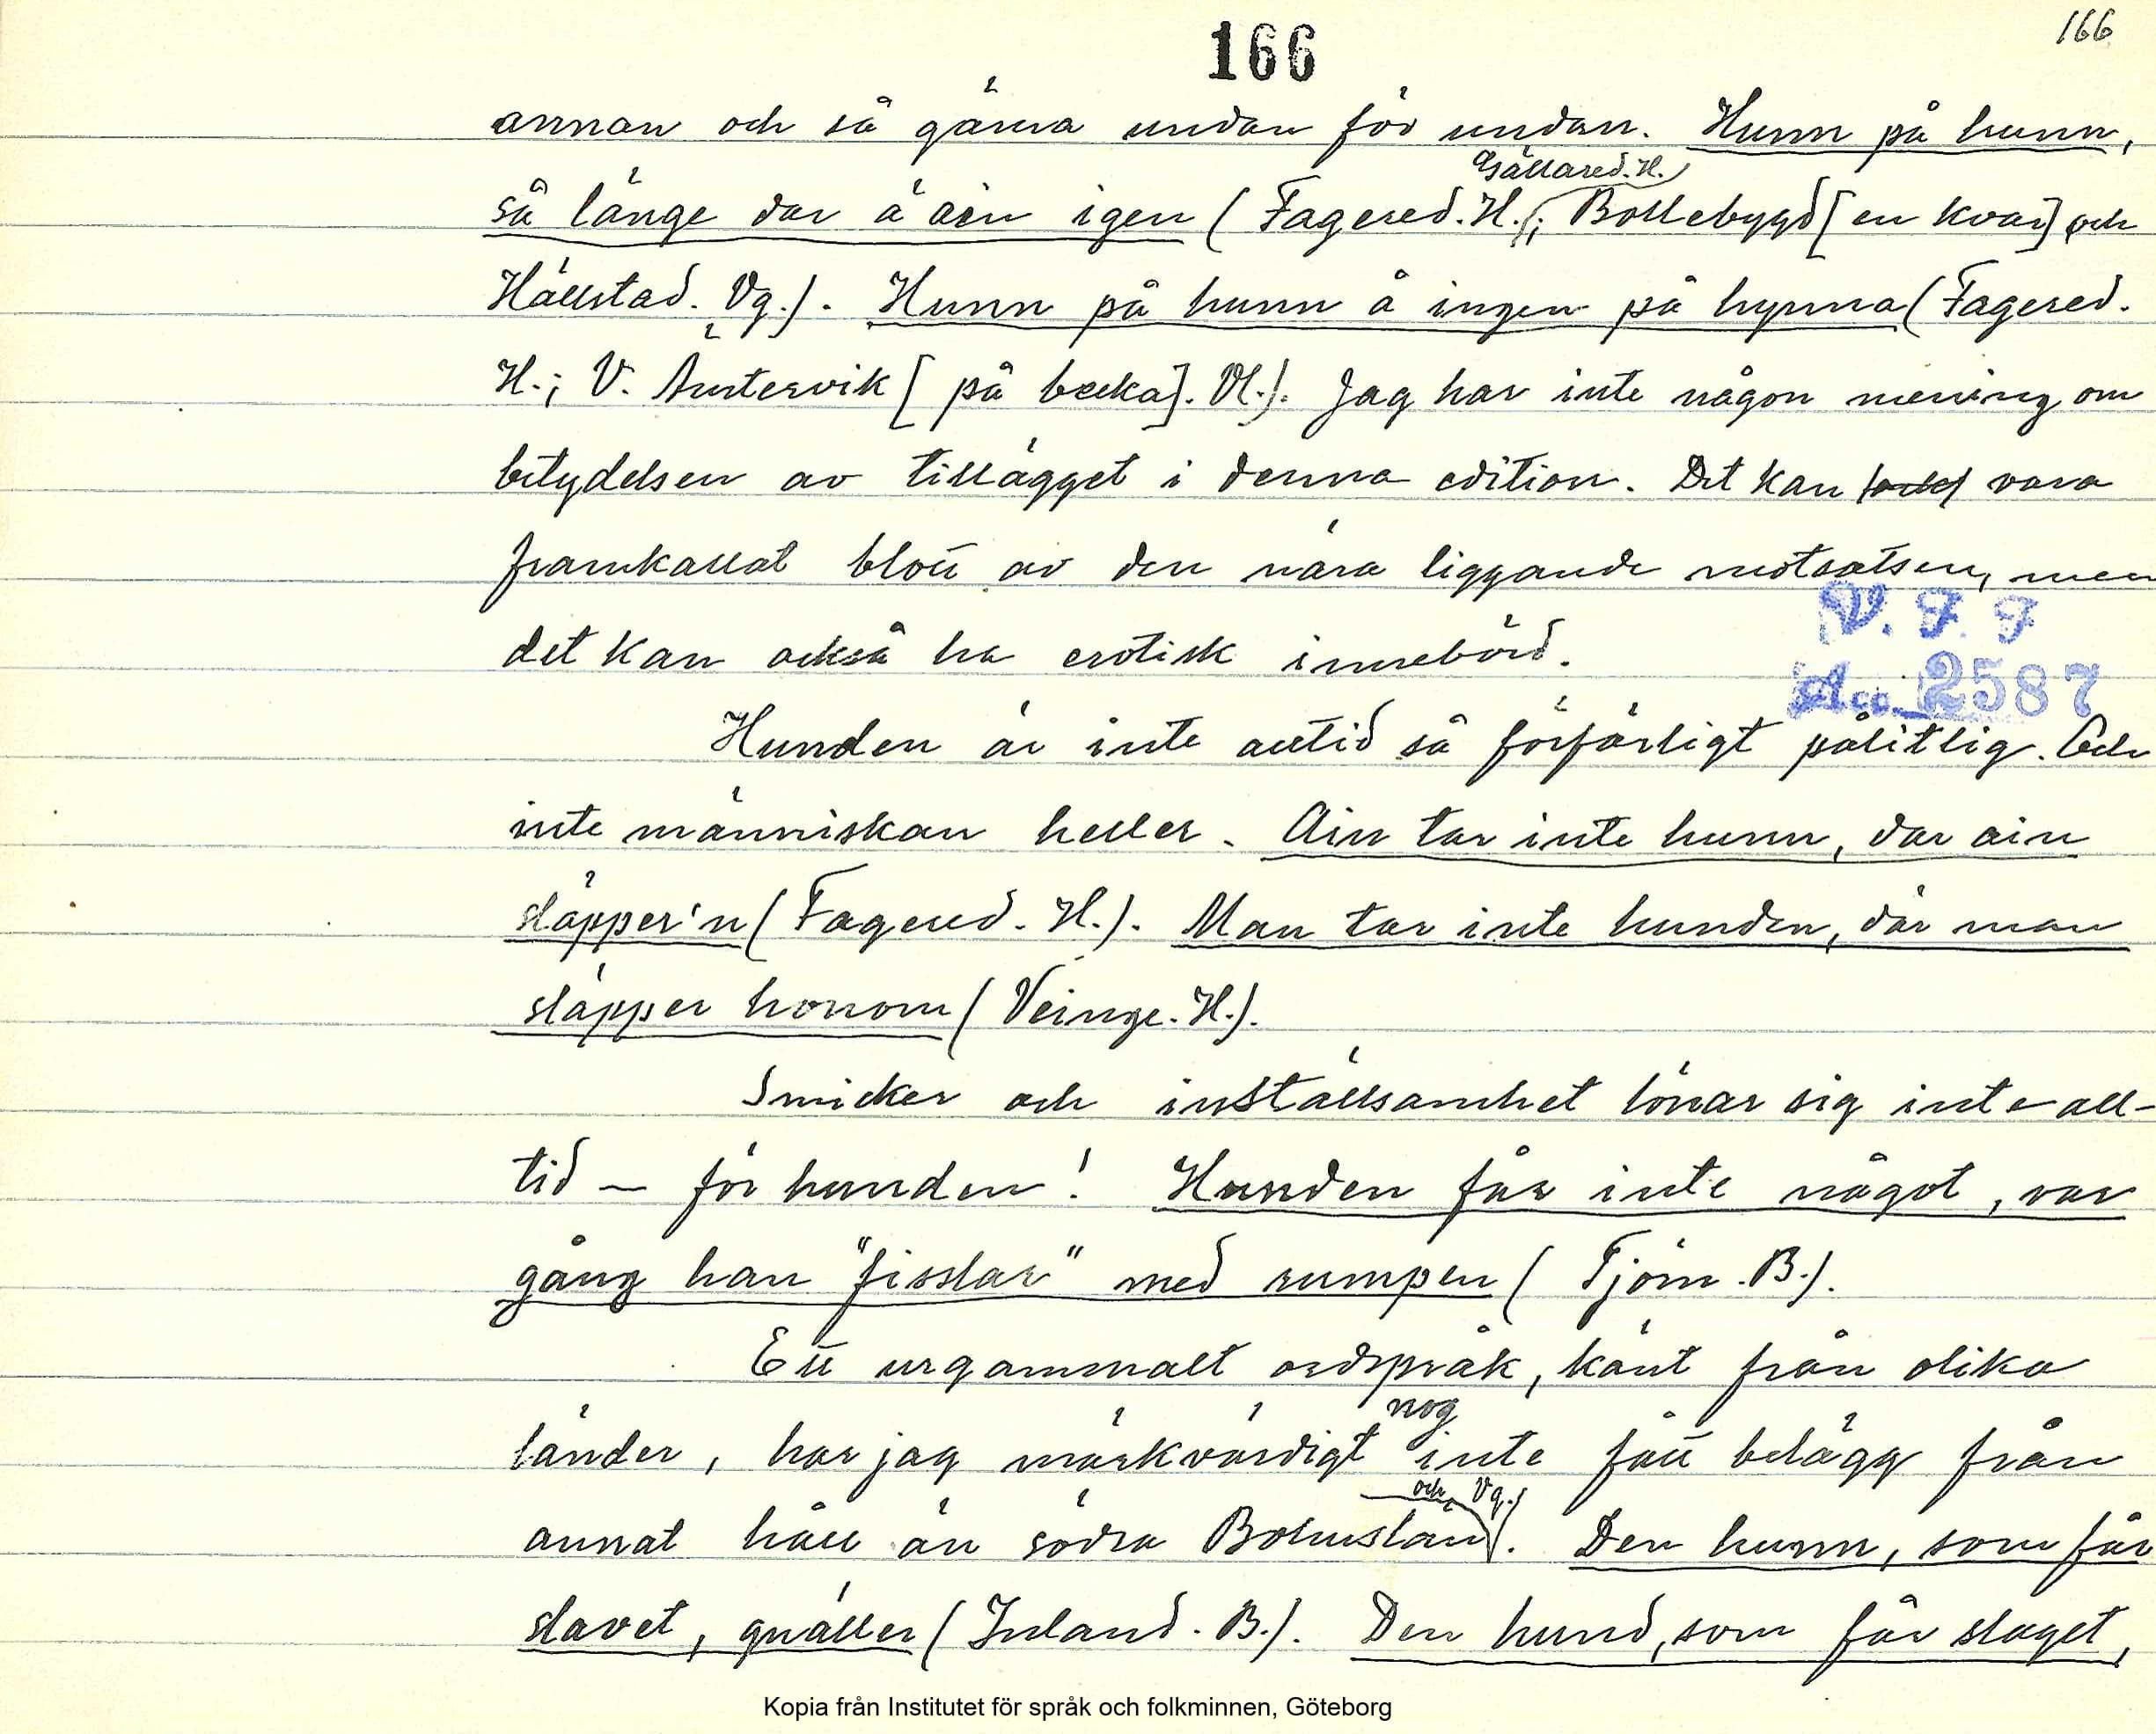 166
166
annan och så gärna undan för undan. Hunn på hunn,
Gällared. H.
så länge dar ä ain igen (Fagered. H.; Bollebygd [en kvar] och
Hällstad. Vg.). Hunn på hunn å ingen på hynna (Fagered.
H.; V. Austervik [på becka]. Vl.). Jag har inte någon mening om
betydelsen av tillägget i denna edition. Det kan vara
framkallat blott av den nära liggande motsatsen, men
V. F. F
det kan också ha erotisk innebörd.
Acc. 2587
Hunden är inte alltid så förfärligt pålitlig. Och
inte människan heller. Ain tar inte hunn, dar ain
släpper'n (Fagered. H.). Man tar inte hunden, där man
släpper honom (Veinge. H.).
Smicker och inställsamhet lönar sig inte all-
tid – för hunden! Hunden får inte något, var
gång han "fisslar" med rumpen (Tjörn. B.).
Ett urgammalt ordspråk, känt från olika
nog
länder, har jag märkvärdigt inte fått belägg från
och Vg.
annat håll än södra Bohuslän. Den hunn, som får
slavet, gnäller (Inland. B.). Den hund, som får slaget,
Kopia från Institutet för språk och folkminnen, Göteborg